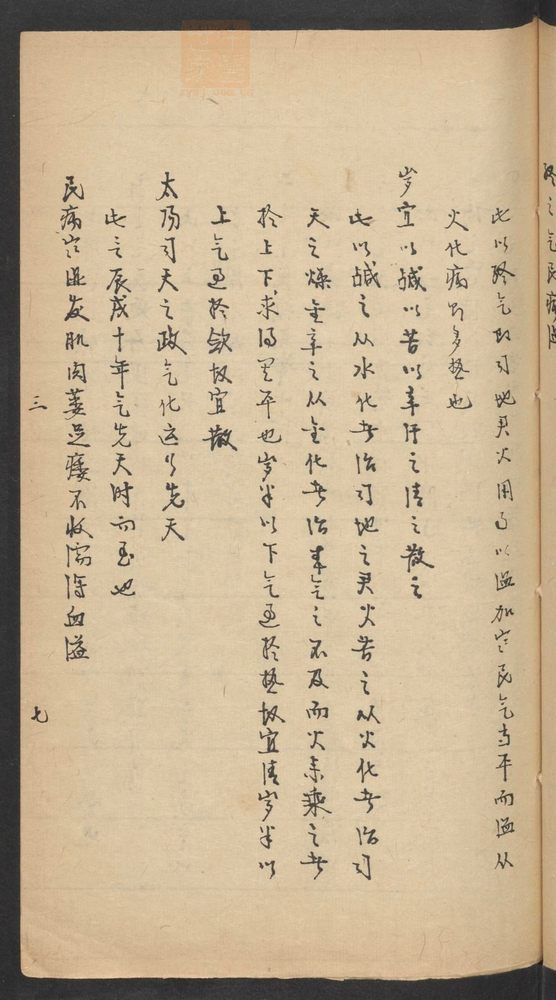 終之气民病溫
此以終气即司地君火用事以溫加寒民气当平而溫从
火化病則多热也
岁宜以鹹以苦以辛汗之清之散之
此以鹹之从水化者治司地之君火苦之从火化者治司
天之燥金辛之从金化者治本气之不及而火来乘之者
於上下求得其平也岁半以下气过於热故宜清岁半以
上气过於歛故宜散
太陽司天之政气化运行先天
此言辰戌十年气先天时而至也
民病寒濕发肌肉萎足痿不收濡泻血溢
三
七